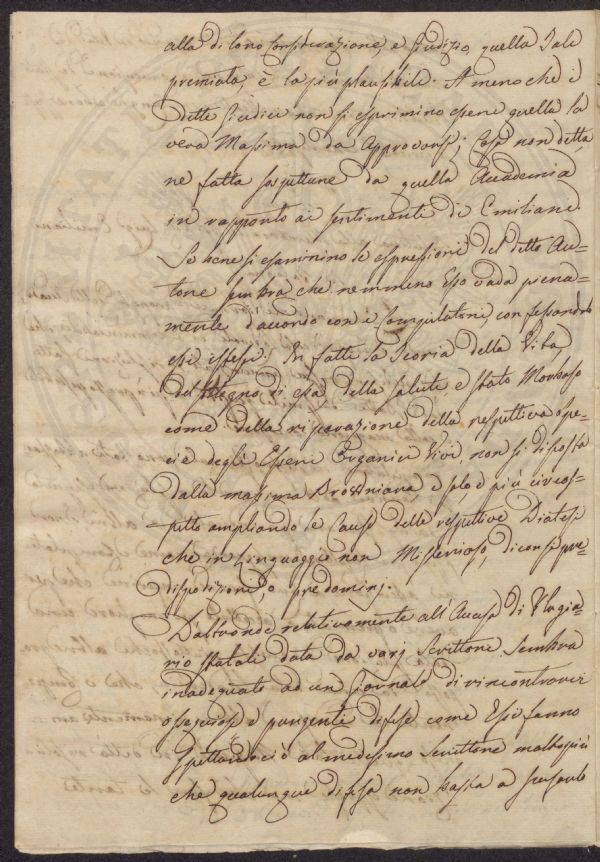 alla di loro Conservazione, e Giudizio, quella Tale
premiata, è la più plausibile. A meno che i
detti Giudici non si esprimino essere quella la
vera Massima da Approvarsi; Cosa non detta,
ne fatta sospettare da quella Accademia
in rapporto ai sentimenti di Emiliani.
Se bene si esaminino le espressioni del detto Au=
tore sembra che nemmeno Esso vada piena=
mente d'accordo con i Compilatori, confessandolo
essi istessi. In fatti la Teoria della Vita
del Sostegno di essa della salute e stato Morboso
come della riparazione della respettiva spe=
cie degli Esseri Organici Vivi non si discosta
dalla massima Browniana, e solo è più circos=
=petto ampliando le Cause delle respettive Diatesi
che in Linguaggio non Misterioso, diconsi pre=
disposizioni, o predominj.
D'altronde relativamente all'Accusa di Plagia=
rio statali data da varj Scrittori Sembra
inadeguato ad un Giornale di rincontrarvi
ossequiose e pungenti difese come Essi fanno
Spettando ciò al medesimo Scrittore molto più
che qualunque difesa non basta a scusarlo